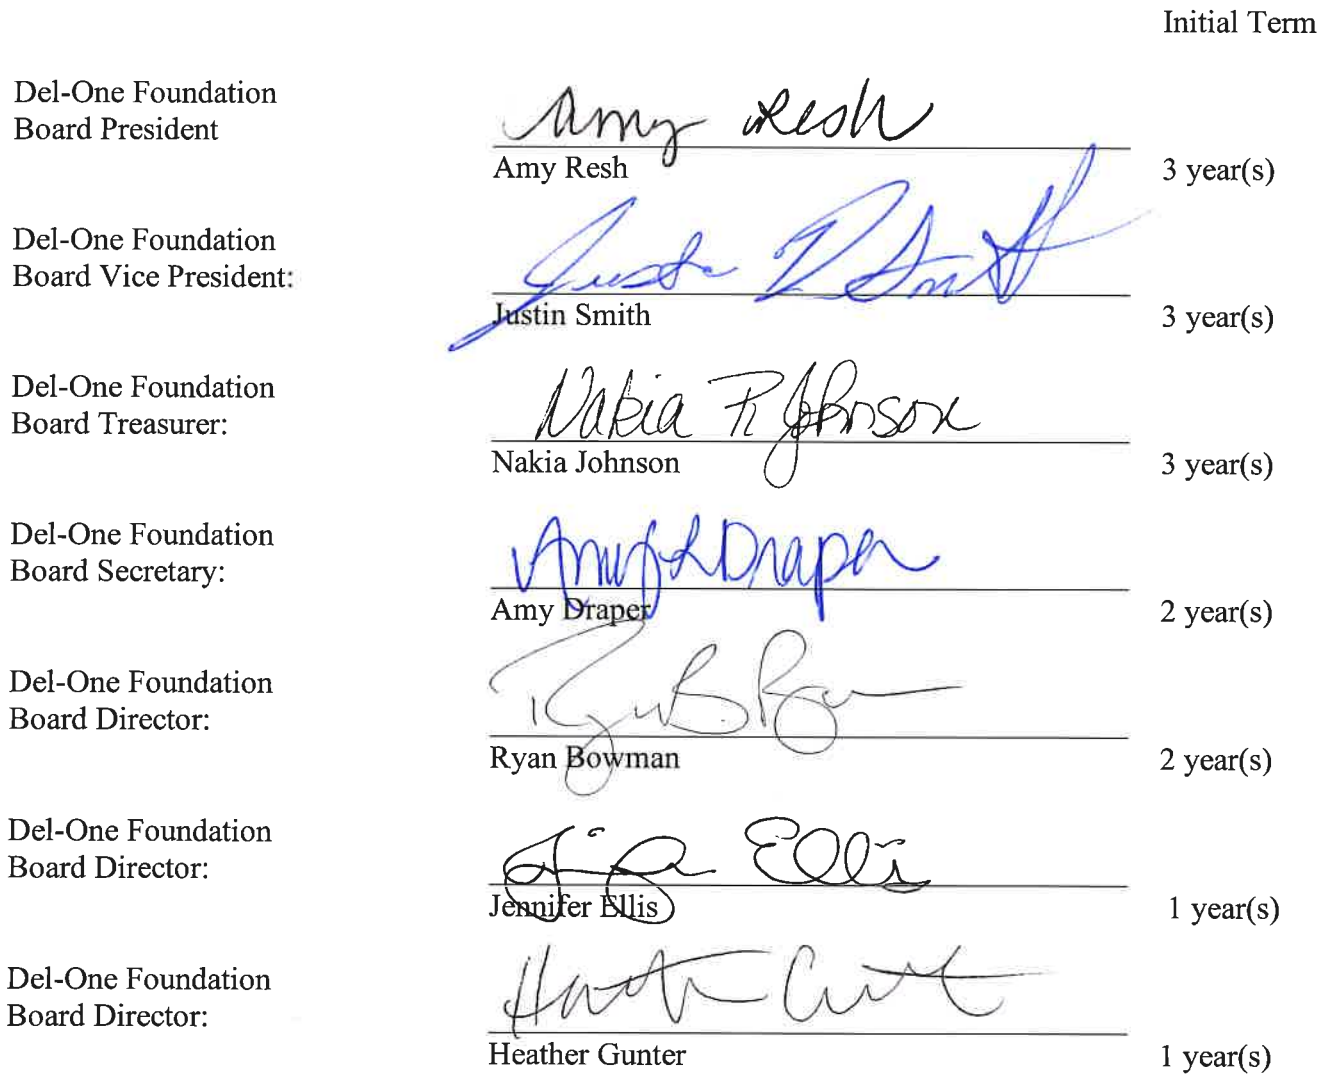 Initial Term
Del-One Foundation
Board President
Amy Resh
Amy Resh
3 year(s)
Del-One Foundation
Board Vice President:
Justin Smith
3 year(s)
Del-One Foundation
Board Treasurer:
Nakia R Johnson
Nakia Johnson
3 year(s)
Del-One Foundation
Board Secretary:
Amy L Draper
Amy Draper
2 year(s)
Del-One Foundation
Board Director:
Ryan Bowman
2 year(s)
Del-One Foundation
Board Director:
Ellis
Jennifer Ellis
1 year(s)
Del-One Foundation
Board Director:
Heather Gunter
1 year(s)